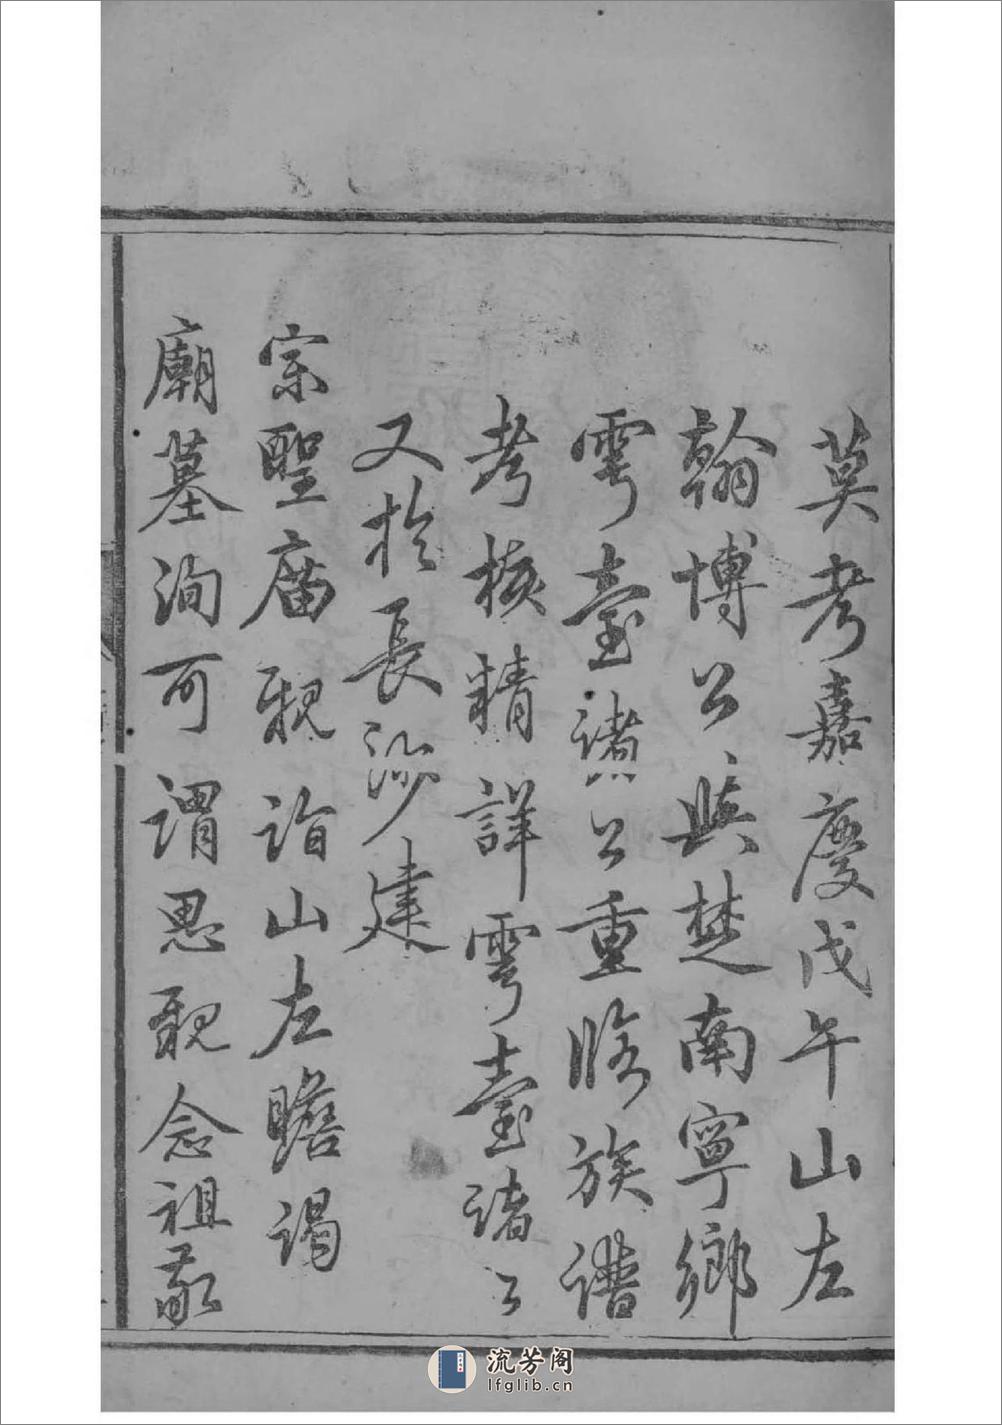 莫考嘉慶戊午山左
翰博公與楚南寧鄉
雩臺諸公重脩族譜
考核精詳雩臺諸公
又於長沙建
宗聖廟親詣山左瞻謁
廟墓洵可謂思親念祖敬
流芳阁
lfglib.cn